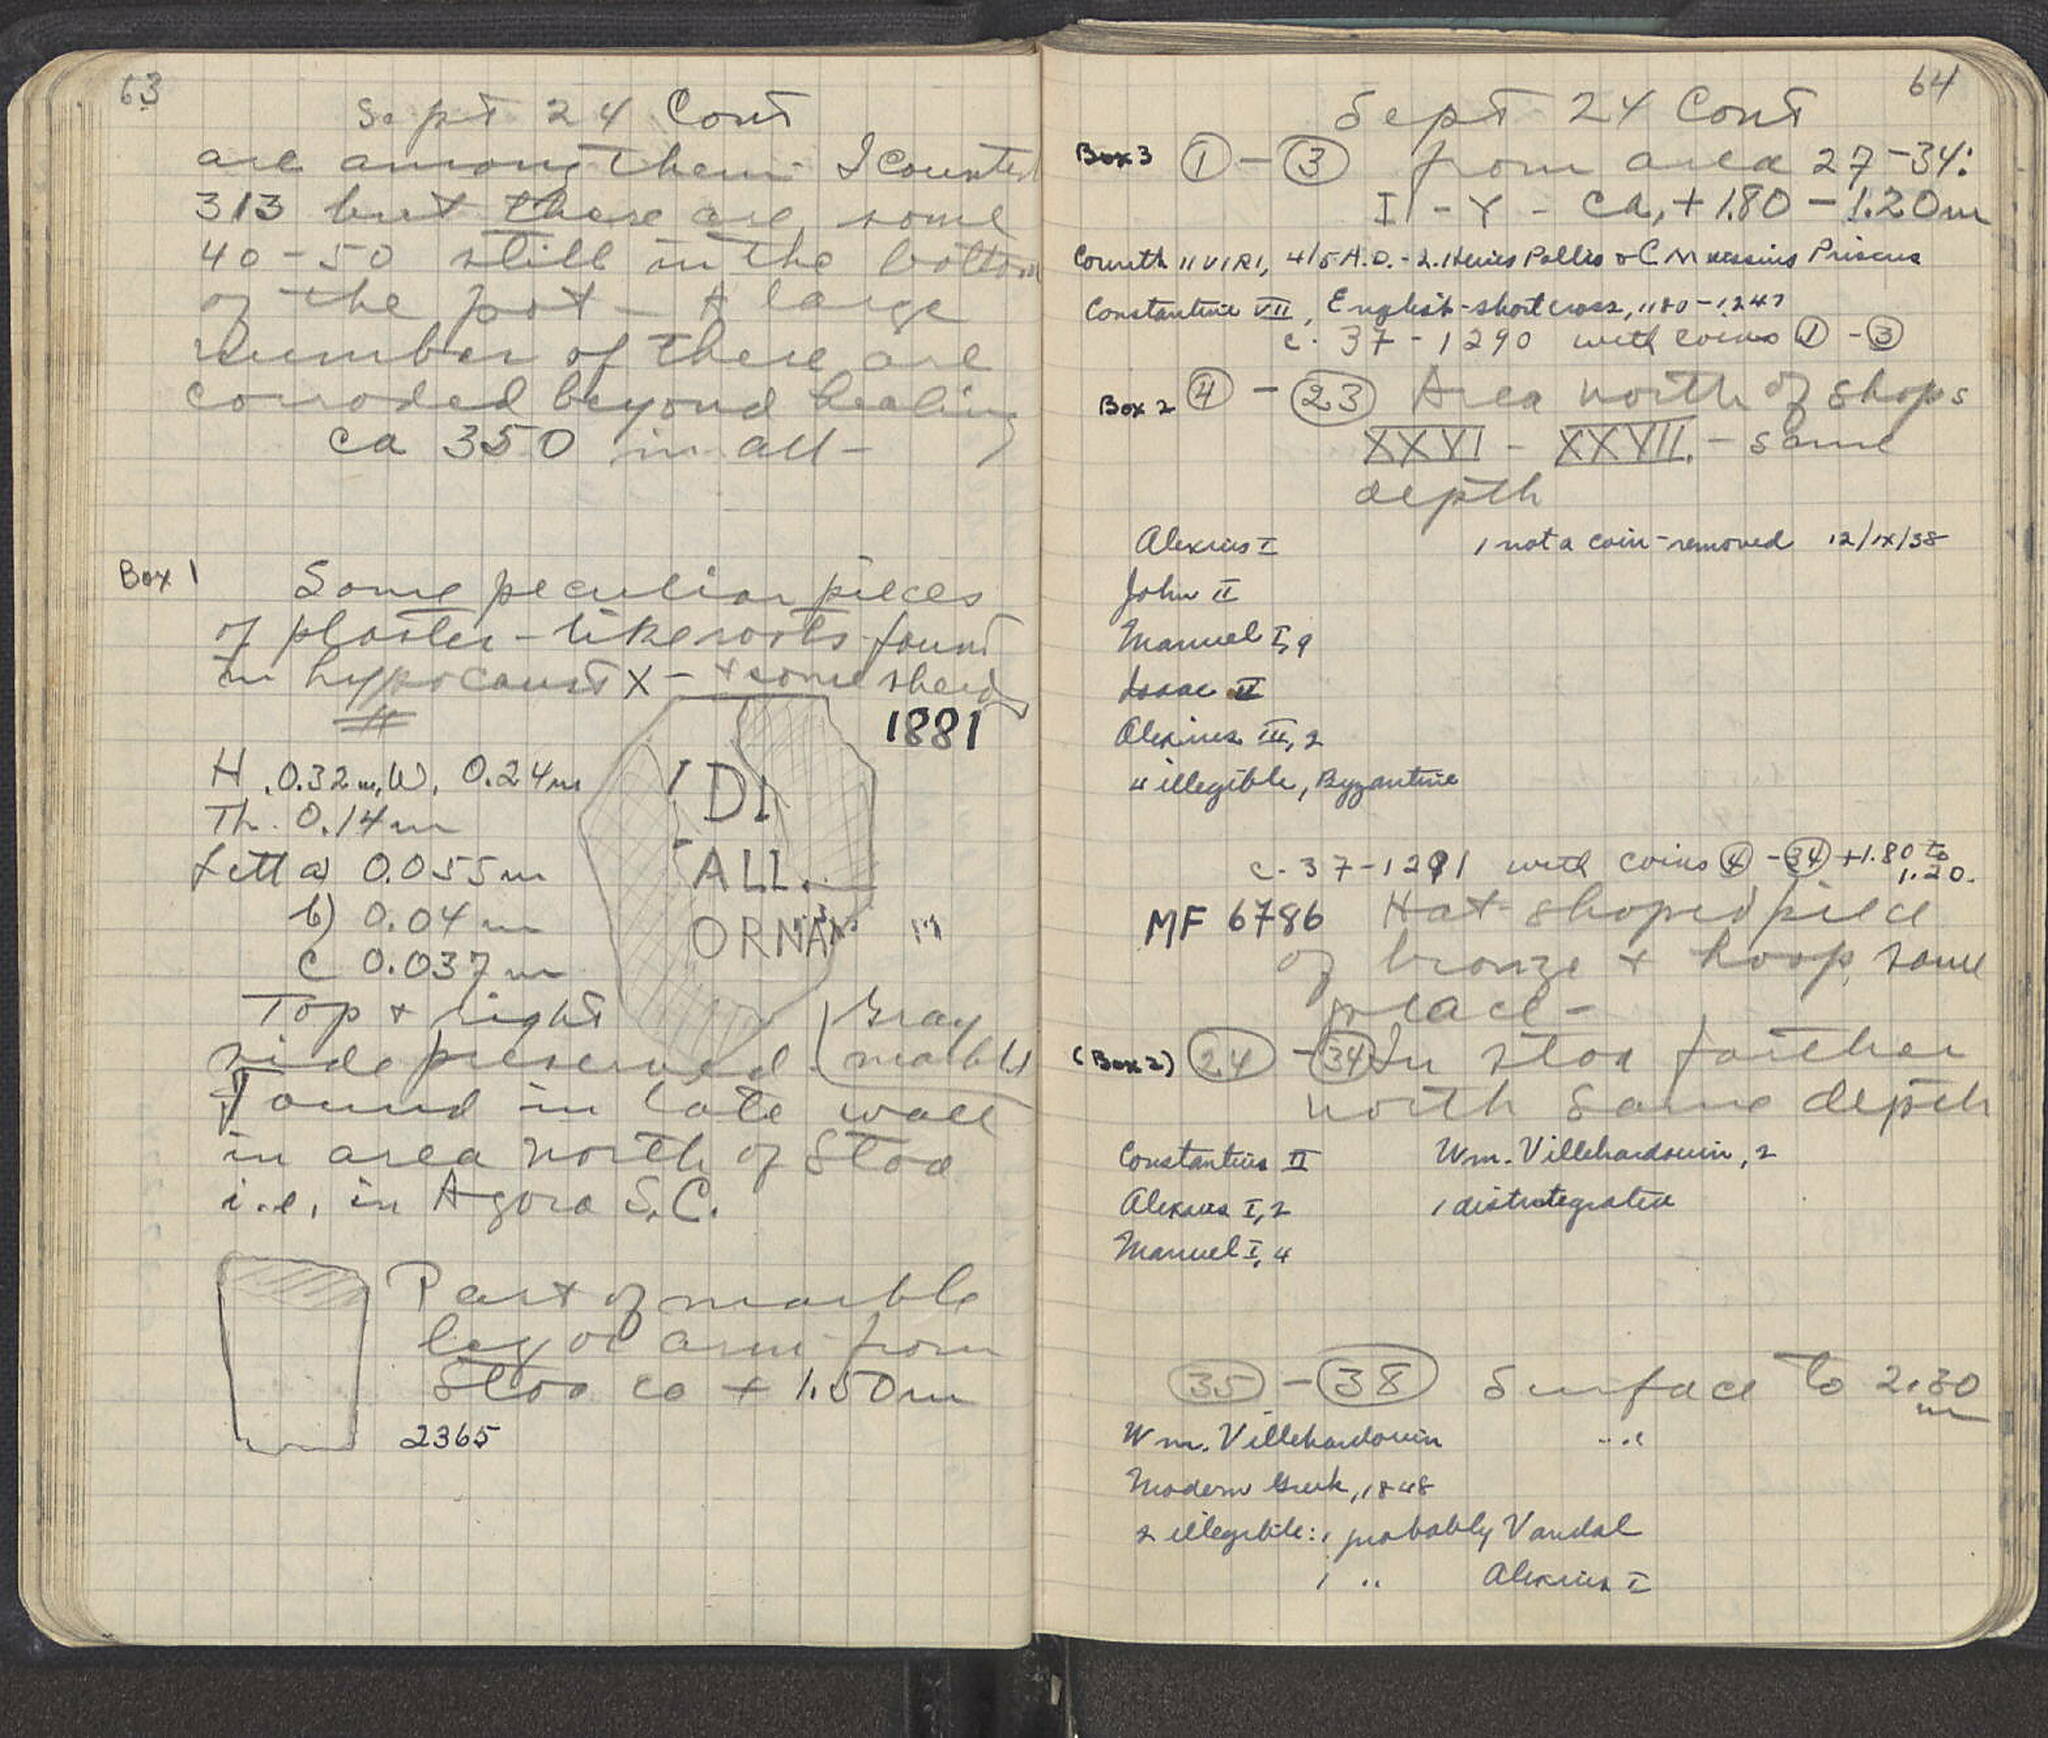 63
Sept 24 Cont
are among them. I counted
313 but there are some
40-50 still in the bottom
of the pot - A large
number of these are
corroded beyond healing
ca 350 in all -
Box 1 Some peculiar pieces
of plaster-like roots found
in hypocaust X - + some sherds
1881
H. 0.32m, W. 0.24m
Th. 0.14m
Lett a) 0.055m
b) 0.04m
c 0.037m
DI
ALL.
ORNA
Top + right
side preserved. (Gray
marble)
Found in late wall
in area north of Stoa
i.e. in Agora S.C.
Part of marble
leg or arm from
Stoa ca + 1.50m
2365
64
Sept 24 Cont
Box 3 ① - ③ from area 27-34:
I - Y - ca, + 1.80 - 1.20m
Corinth IIVIRI, 4/5 A.D. - 2. Heius Pollio & C Mussius Priscus
Constantine VII, English-short cross, 1180-1247
c. 37-1290 with coins ① - ③
Box 2 ④ - ㉓ Area north of shops
XXVI - XXVII. - same
depth
Alexius I 1 not a coin-removed 12/IX/38
John II
Manuel I, 9
Isaac II
Alexius III, 2
4 illegible, Byzantine
c. 37-1291 with coins ④ - ㉞ +1.80 to
1.20.
MF 6786 Hat-shaped piece
of bronze + hoop, same
place -
(Box 2) ㉔ - ㉞ In stoa farther
north same depth
Constantius II Wm. Villehardouin, 2
Alexius I, 2 1 disintegrated
Manuel I, 4
㉟ - ㊳ Surface to 2.30
m
Wm. Villehardouin
Modern Greek, 1848
2 illegible: 1 probably Vandal
1 " Alexius I